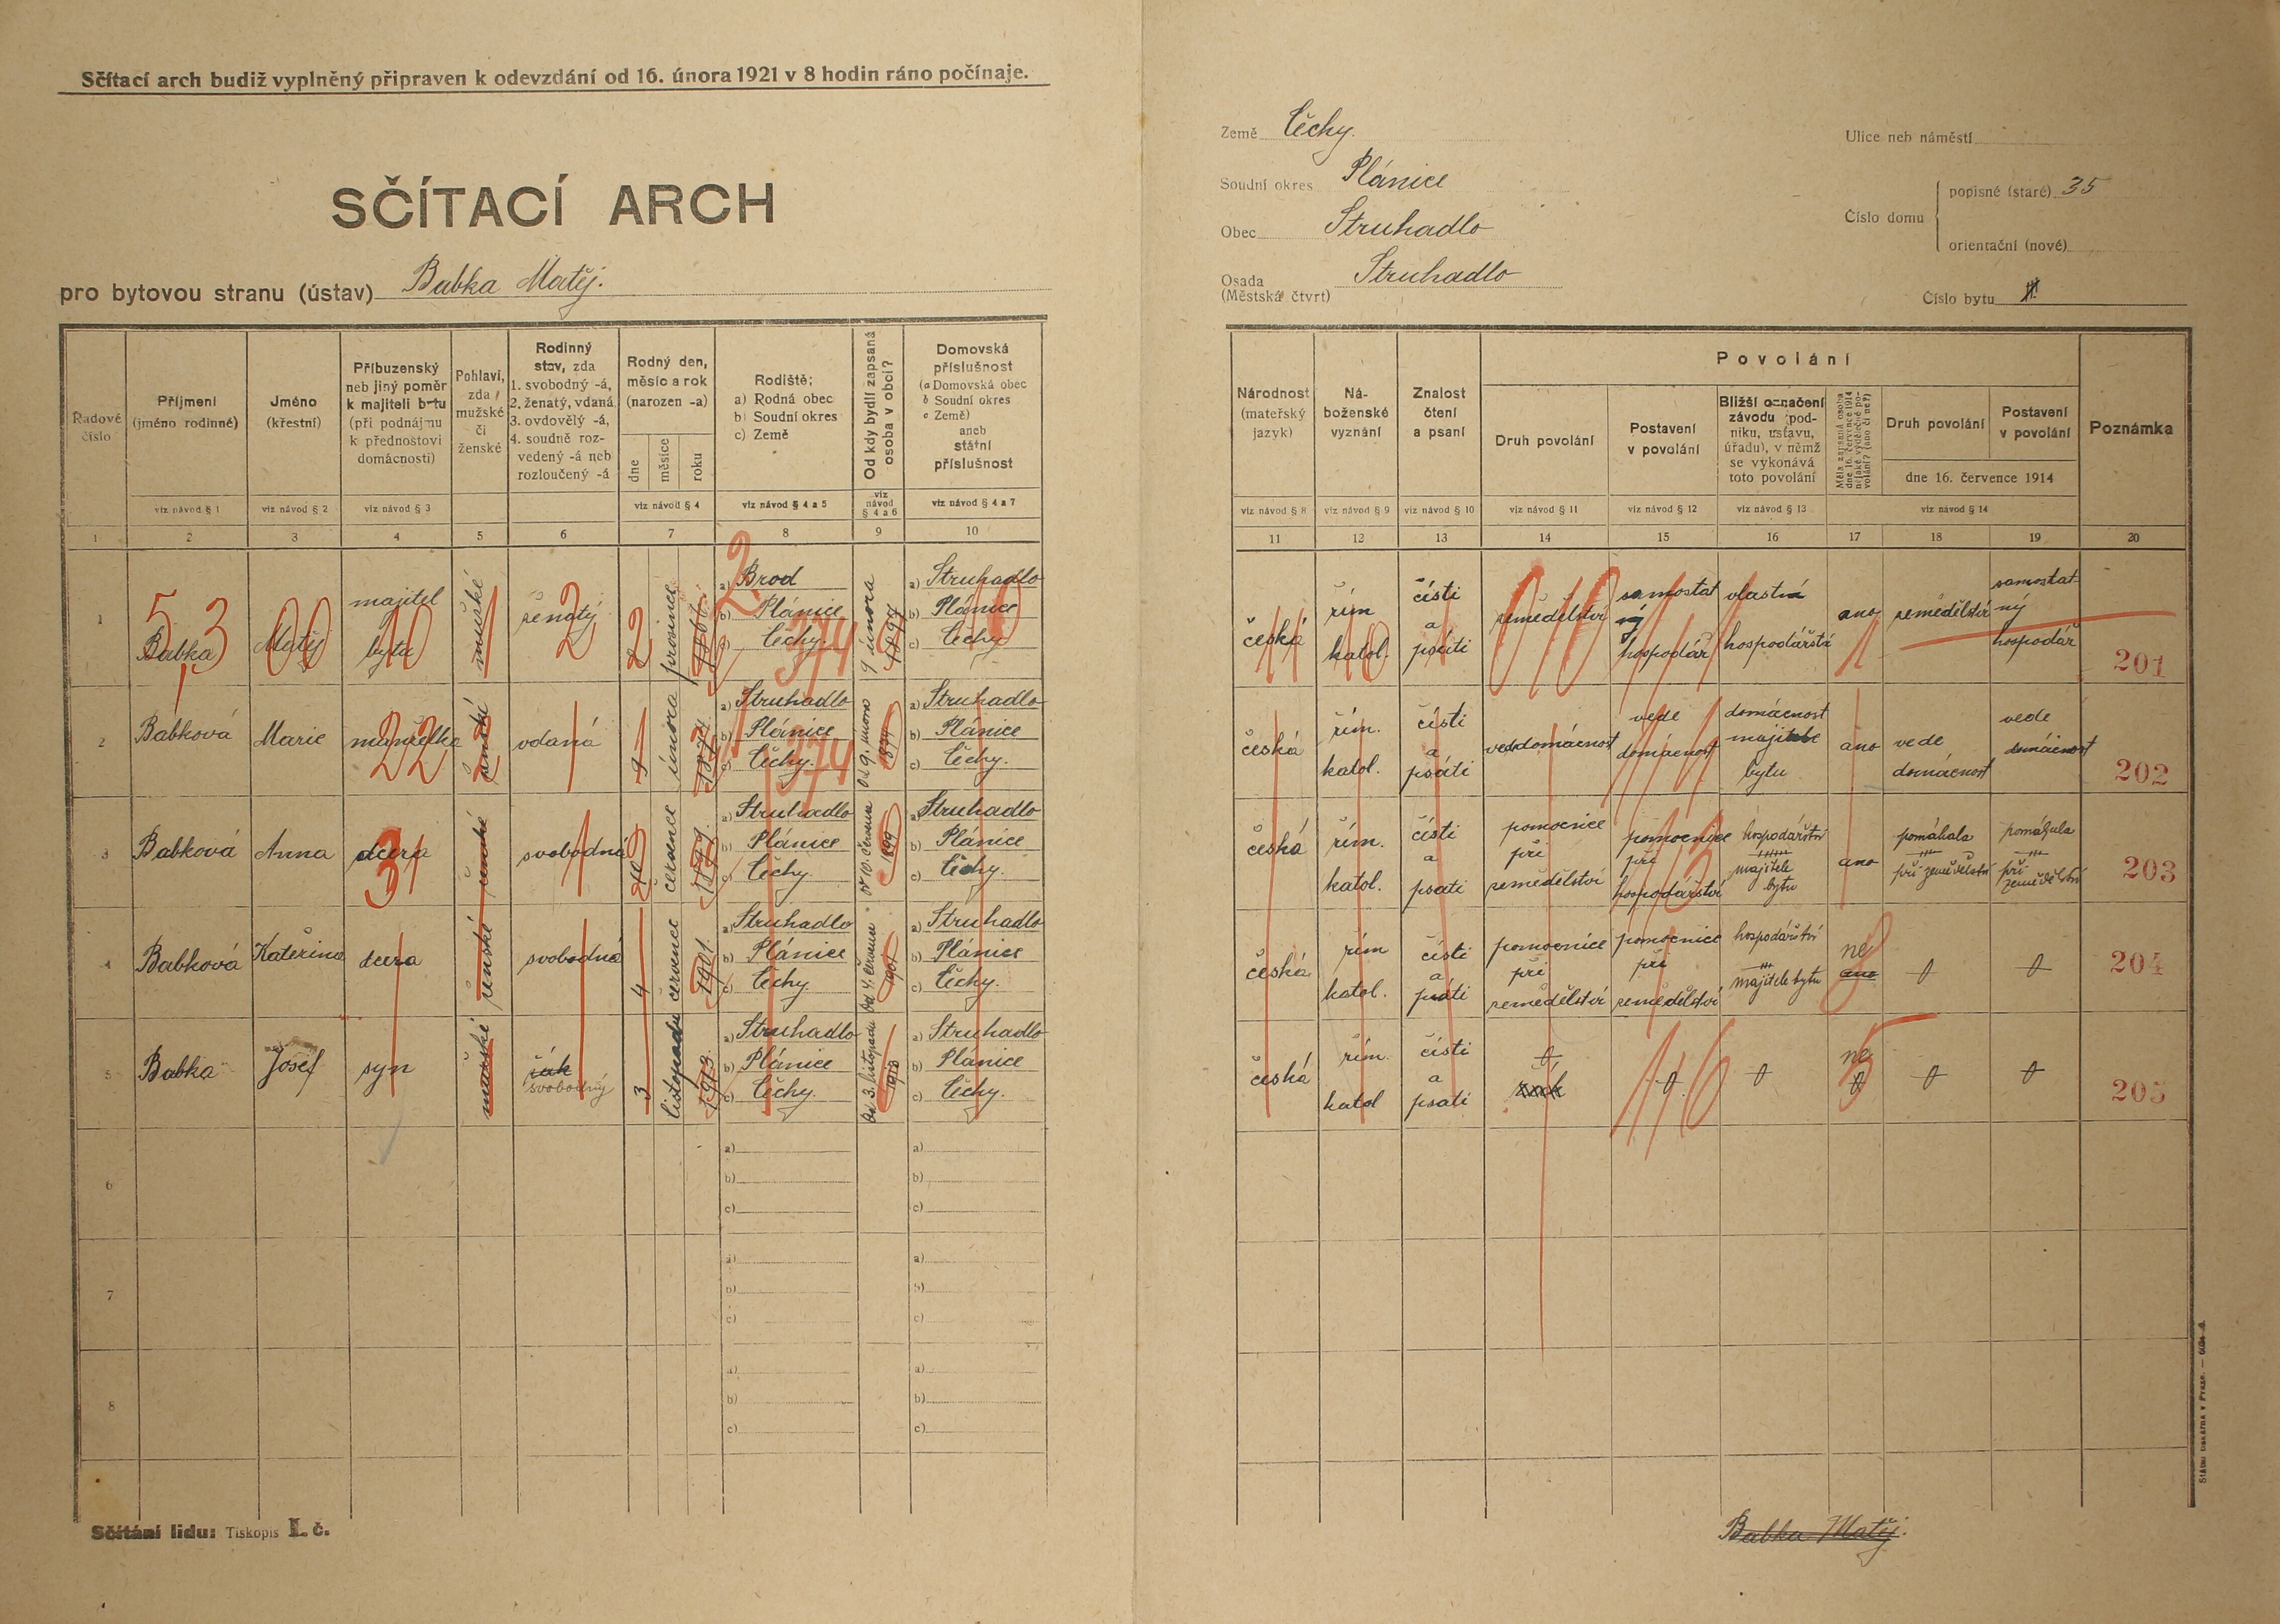 Sčítací arch budiž vyplněný připraven k odevzdání od 16. února 1921 v 8 hodin ráno počínaje.
SČÍTACÍ ARCH
pro bytovou stranu (ústav) Babka Matěj.
Země Čechy.
Soudní okres Plánice
Obec Struhadlo
Osada Struhadlo
(Městská čtvrt)
Ulice neb náměstí
Číslo domu
popisné (staré) 35
orientační (nové)
Číslo bytu
Řadové číslo
Příjmení (jméno rodinné)
Jméno (křestní)
Příbuzenský neb jiný poměr k majiteli bytu (při podnájmu k přednostovi domácnosti)
Pohlaví, zda mužské či ženské
Rodinný stav, zda 1. svobodný -á, 2. ženatý, vdaná, 3. ovdovělý -á, 4. soudně rozvedený -á neb rozloučený -á
Rodný den, měsíc a rok (narozen -a)
dne měsíce roku
Rodiště: a) Rodná obec b) Soudní okres c) Země
Od kdy bydlí zapsaná osoba v obci?
Domovská příslušnost (a Domovská obec b Soudní okres c Země) aneb státní příslušnost
viz návod § 1 viz návod § 2 viz návod § 3 viz návod § 4 viz návod § 4 a 5 viz návod § 4 a 6 viz návod § 4 a 7
1 2 3 4 5 6 7 8 9 10
Národnost (mateřský jazyk)
Náboženské vyznání
Znalost čtení a psaní
Povolání
Druh povolání
Postavení v povolání
Bližší označení závodu (podniku, ústavu, úřadu), v němž se vykonává toto povolání
Měla zapsaná osoba dne 16. července 1914 nějaké výdělečné povolání? (ano či ne?)
Druh povolání
Postavení v povolání
dne 16. července 1914
Poznámka
viz návod § 8 viz návod § 9 viz návod § 10 viz návod § 11 viz návod § 12 viz návod § 13 viz návod § 14
11 12 13 14 15 16 17 18 19 20
1 Babka Matěj majitel bytu mužské ženatý 2 prosince
a) Brod
b) Plánice
c) Čechy
9 února 1897
a) Struhadlo
b) Plánice
c) Čechy
česká řím katol. čísti a psáti zemědělství samostatný hospodář vlastní hospodářství ano zemědělství samostatný hospodář 201
2 Babková Marie manželka ženské vdaná 9 února 1874
a) Struhadlo
b) Plánice
c) Čechy.
od 9. února 1874
a) Struhadlo
b) Plánice
c) Čechy.
česká řím. katol. čísti a psáti vede domácnost vede domácnost domácnost majitele bytu ano vede domácnost vede domácnost 202
3 Babková Anna dcera ženské svobodná 10 července 1899
a) Struhadlo
b) Plánice
c) Čechy.
1899
a) Struhadlo
b) Plánice
c) Čechy.
česká řím. katol. čísti a psati pomocnice při zemědělství pomocnice při hospodářství hospodářství majitele bytu ano pomáhala při zemědělství pomáhala při zemědělství 203
4 Babková Kateřina dcera ženské svobodná 4 července 1901
a) Struhadlo
b) Plánice
c) Čechy
od 4. července 1901
a) Struhadlo
b) Plánice
c) Čechy.
česká řím katol. čísti a psáti pomocnice při zemědělství pomocnice při zemědělství hospodářství majitele bytu ne ano 0 0 204
5 Babka Josef syn mužské žák svobodný 3 listopadu 1913
a) Struhadlo
b) Plánice
c) Čechy.
od 3. listopadu 1913
a) Struhadlo
b) Plánice
c) Čechy.
česká řím. katol čísti a psati 0 žák 0 0 ne 0 0 0 205
6 a)
b)
c)
a)
b)
c)
7 a)
b)
c)
a)
b)
c)
8 a)
b)
c)
a)
b)
c)
Sčítání lidu: Tiskopis I. č.
Babka Matěj.
Státní tiskárna v Praze.